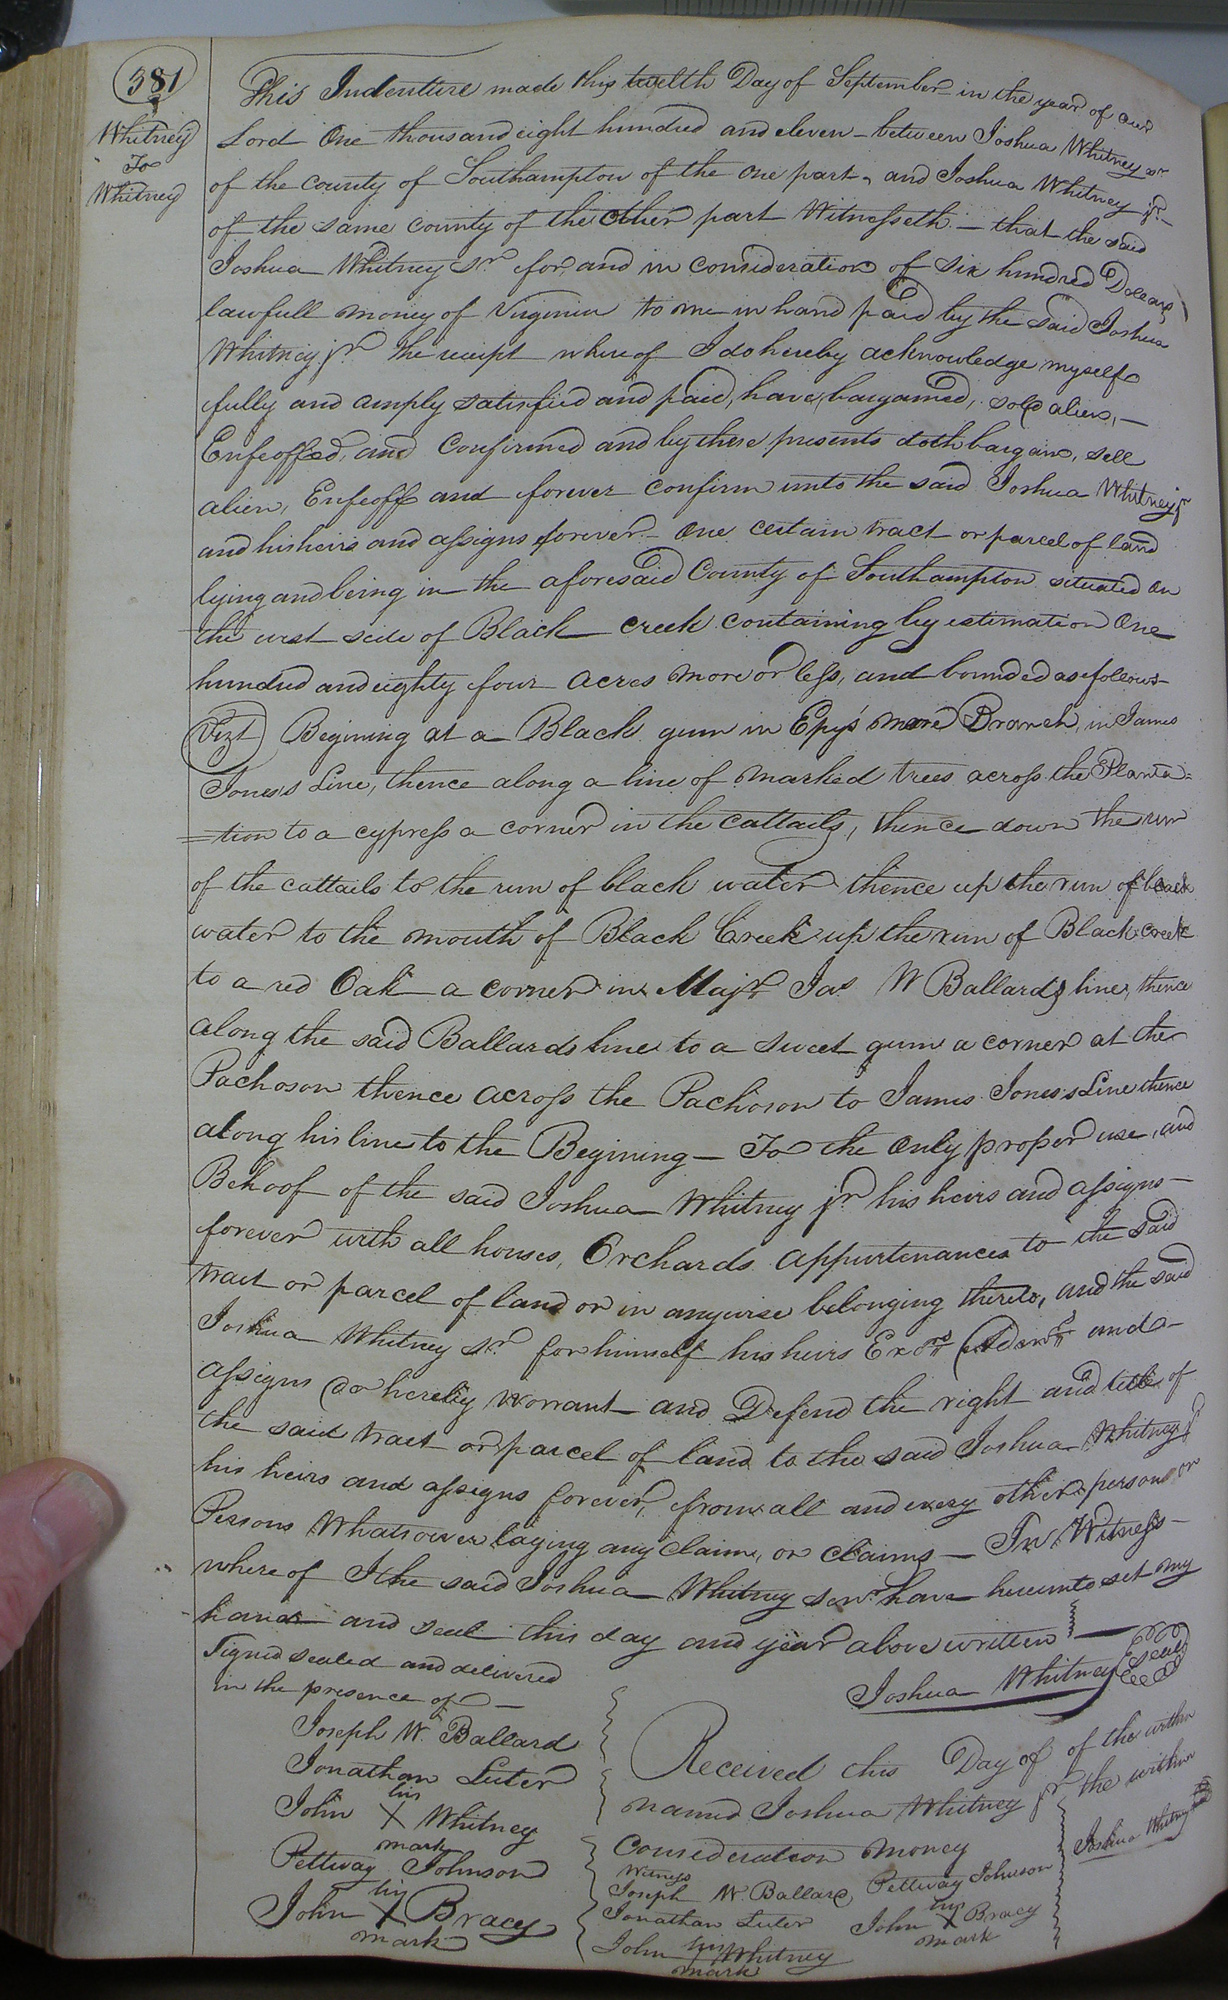 381
Whitney
To
Whitney
This Indenture made this twelth Day of September in the year of our
Lord One thousand eight hundred and eleven - between Joshua Whitney sr
of the county of Southampton of the one part, and Joshua Whitney jr. -
of the same county of the other part Witnesseth - that the said
Joshua Whitney Sr for, and in consideration of six hundred Dollars
lawfull money of Virginia to me in hand paid by the said Joshua
Whitney jr the receipt whereof I do hereby acknowledge myself
fully and amply satisfied and paid, have, bargained, sold alien, -
Enfeoffed, and Confirmed and by these presents doth bargain, sell
alien, Enfeoff and forever confirm unto the said Joshua Whitney jr
and his heirs and assigns forever - One certain tract or parcel of land
lying and being in the aforesaid County of Southampton situated on
the west side of Black creek containing by estimation One
hundred and eighty four acres more or less, and bounded as follows
Vizt Begining at a Black gum in Epy's mare Branch, in James
Jones's Line, thence along a line of marked trees across the Planta=
=tion to a cypress a corner in the cattails, thence down the run
of the cattails to the run of black water thence up the run of black
water to the mouth of Black Creek up the run of Black creek
to a red Oak a corner in Majr Jas W Ballards line, thence
along the said Ballards line to a sweet gum a corner at the
Pachoson thence across the Pachoson to James Jones's Line thence
along his line to the Begining - To the only proper use, and
Behoof of the said Joshua Whitney jr his heirs and assigns -
forever with all houses, Orchards appurtenances to the said
tract or parcel of land or in anywise belonging thereto, and the said
Joshua Whitney Sr for himself his heirs Exors Admrs and
assigns do hereby warrant and Defend the right and title of
the said tract or parcel of land to the said Joshua Whitney jr
his heirs and assigns forever, from all and every other person or
Persons Whatsoever laying any claim, or claims - In Witness -
whereof I the said Joshua Whitney senr have hereunto set my
hand and seal this day and year above written
Signed sealed and delivered
in the presence of -
Joshua Whitney Seal
Joseph W. Ballard
Jonathan Luter
his
John X Whitney
mark
Pettway Johnson
his
John X Bracy
mark
Received this Day of of the within
named Joshua Whitney jr the within
Consideration money
Joshua Whitney
Witness
Joseph W. Ballard, Pettway Johnson
Jonathan Luter
his
John X Bracy
mark
John his Whitney
mark